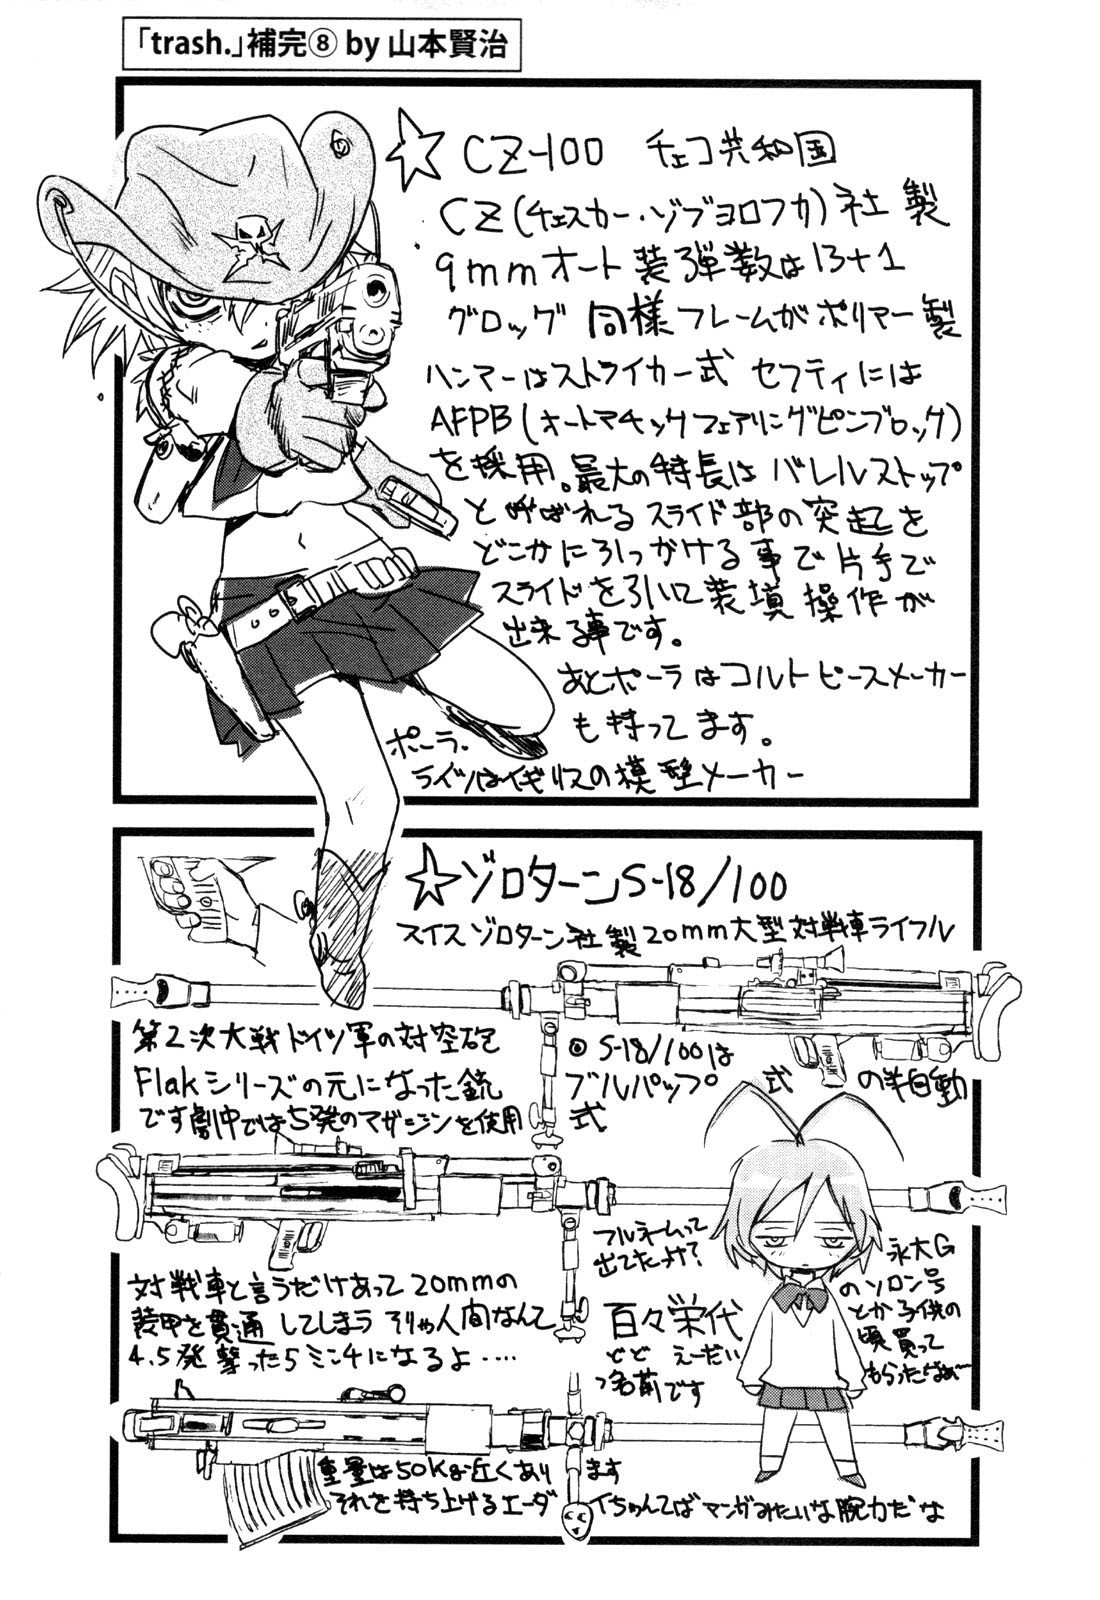 「trash.」補完⑧ by 山本賢治
☆CZ-100 チェコ共和国
CZ(チェスカー・ゾブヨロフカ)社製
9mmオート装弾数は13+1
グロッグ同様フレームがポリマー製
ハンマーはストライカー式 セフティには
AFPB(オートマチックフェアリングピンブロック)
を採用。最大の特長はバレルストップ
と呼ばれるスライド部の突起を
どこかに引っかける事で片手で
スライドを引いて装填操作が
出来る事です。
あとポーラはコルトピースメーカー
も持ってます。
ポーラ.
ライツはイギリスの模型メーカー
☆ゾロターンS-18/100
スイスゾロターン社製20mm大型対戦車ライフル
第2次大戦ドイツ軍の対空砲
Flakシリーズの元になった銃
です劇中では5発のマガジンを使用
◎S-18/100は
ブルパップ式の半自動
式
対戦車と言うだけあって20mmの
装甲を貫通してしまう そりゃ人間なんて
4.5発撃ったらミンチになるよ‥‥
フルネームって
出てたっけ?
百々栄代
どど えーだい
っ名前です
永大G
のソロン号
とか子供の
頃買って
もらったなぁ〜
重量は50kg近くあります
それを持ち上げるエーダイちゃんてばマンガみたいな腕力だな